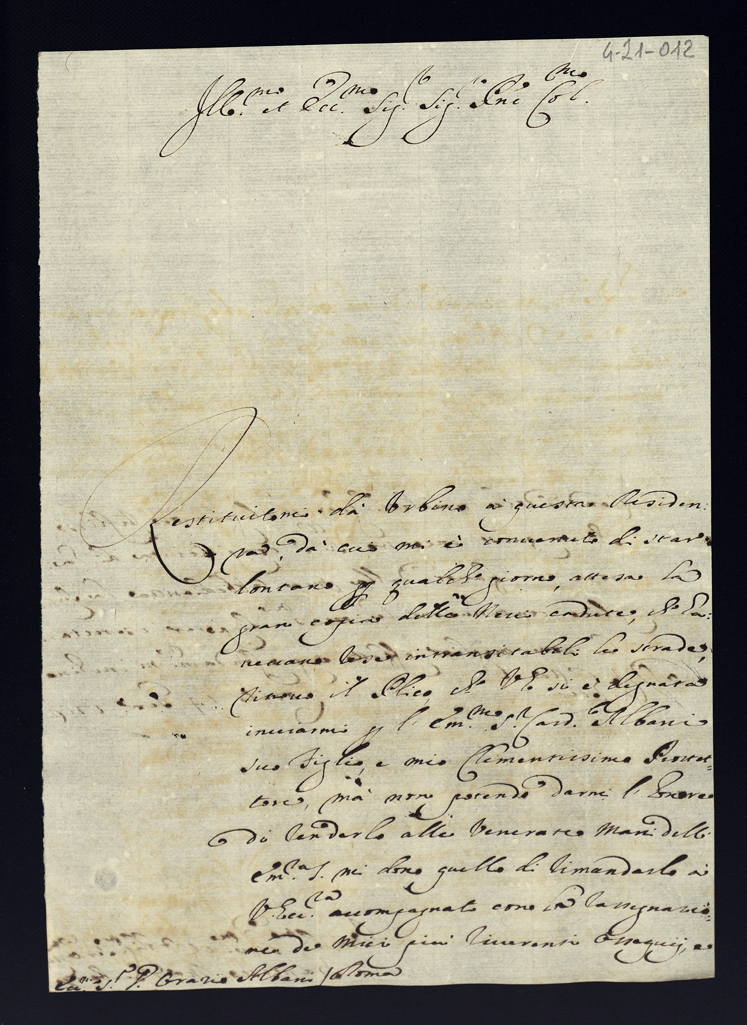 4-21-012
Ill.mo et Ecc.mo Sig.r Sig.r P.ne Col.mo
Restituitomi dà Urbino a questa Residen:
za, dà cui mi è convenuto di star
lontano p qualche giorno, attesa la
gran copia delle Nevi cadute, che ha:
veano rese intransitabili le strade,
ritrovo il Plico che V.E. si è degnata
inviarmi p l'Em.mo S.r Card. Albani
suo figlio, e mio Clementissimo Protet:
tore, mà non potendo darmi l'honore
di renderlo alle venerate mani dell'
Em.za S. mi dono quello di rimandarlo a
V. Ecc.za accompagnato con la rassegnazio:
ne de miei più riverenti ossequij, e
Ecc.mo S.r P. Orazio Albani / Roma